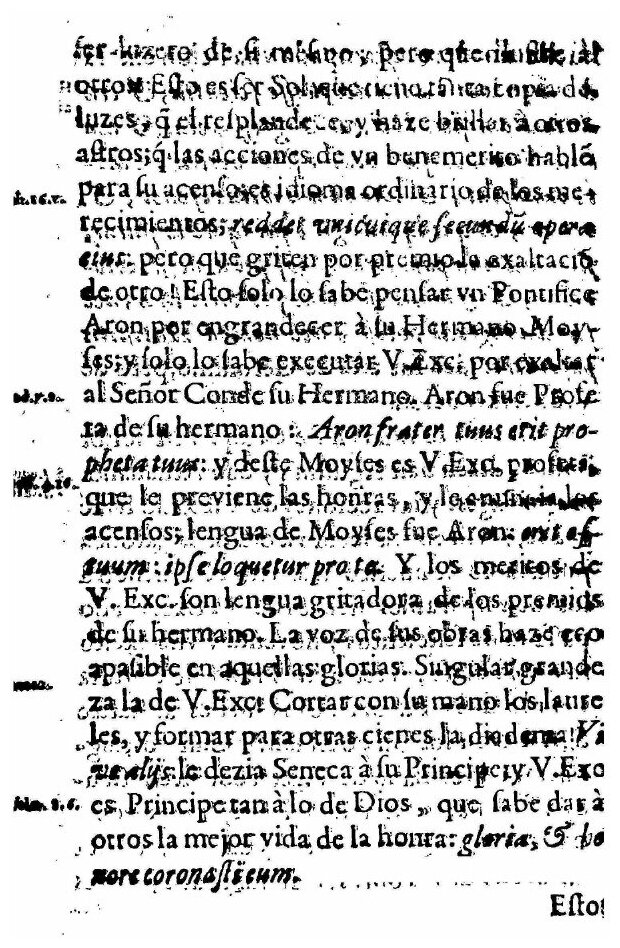 ser luzero de si mesmo, pero que ilustre al
otro! Esto es ser Sol, que tiene tanta copia de
luzes, q̃ el resplandece, y haze brillar à otros
astros; q̃ las acciones de vn benemerito hablẽ
para su acenso, es idioma ordinario de los me-
recimientos; reddet unicuique secundũ opera
eius: pero que griten por premio la exaltaciõ
de otro! Esto solo lo sabe pensar vn Pontifice
Aron por engrandecer à su Hermano Moy-
ses; y solo lo sabe executar V. Exc. por exaltar
al Señor Conde su Hermano. Aron fue Profe
ta de su hermano: Aron frater tuus erit pro-
pheta tuus: y deste Moyses es V. Exc. profeta,
que le previene las honras, y le anuncia los
acensos; lengua de Moyses fue Aron:
ipse loquetur pro te. Y los meritos de
V. Exc. son lengua gritadora de los premios
de su hermano. La voz de sus obras haze eco
apasible en aquellas glorias. Singular grande
za la de V. Exc. Cortar con su mano los laure
les, y formar para otras cienes la diadema!
alijs le dezia Seneca à su Principe; y V. Exc
es Principe tan à lo de Dios, que sabe dar à
otros la mejor vida de la honra: gloria, & ho
nore coronasti eum.
Estos